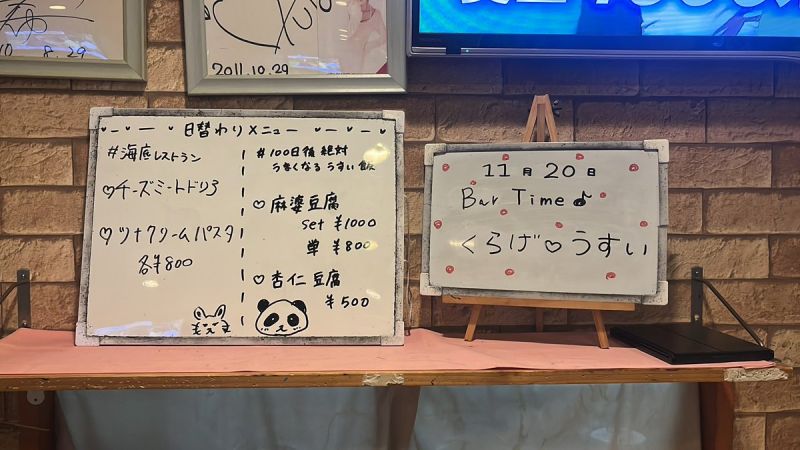 10 8.29
2011.10.29
日替わりメニュー
#海底レストラン
♡チーズミートドリア
♡ツナクリームパスタ
各¥800
#100日後絶対
うまくなるうすい飯
♡麻婆豆腐
set ¥1000
単 ¥800
♡杏仁豆腐
¥500
11月20日
Bar Time♪
くらげ♡うすい